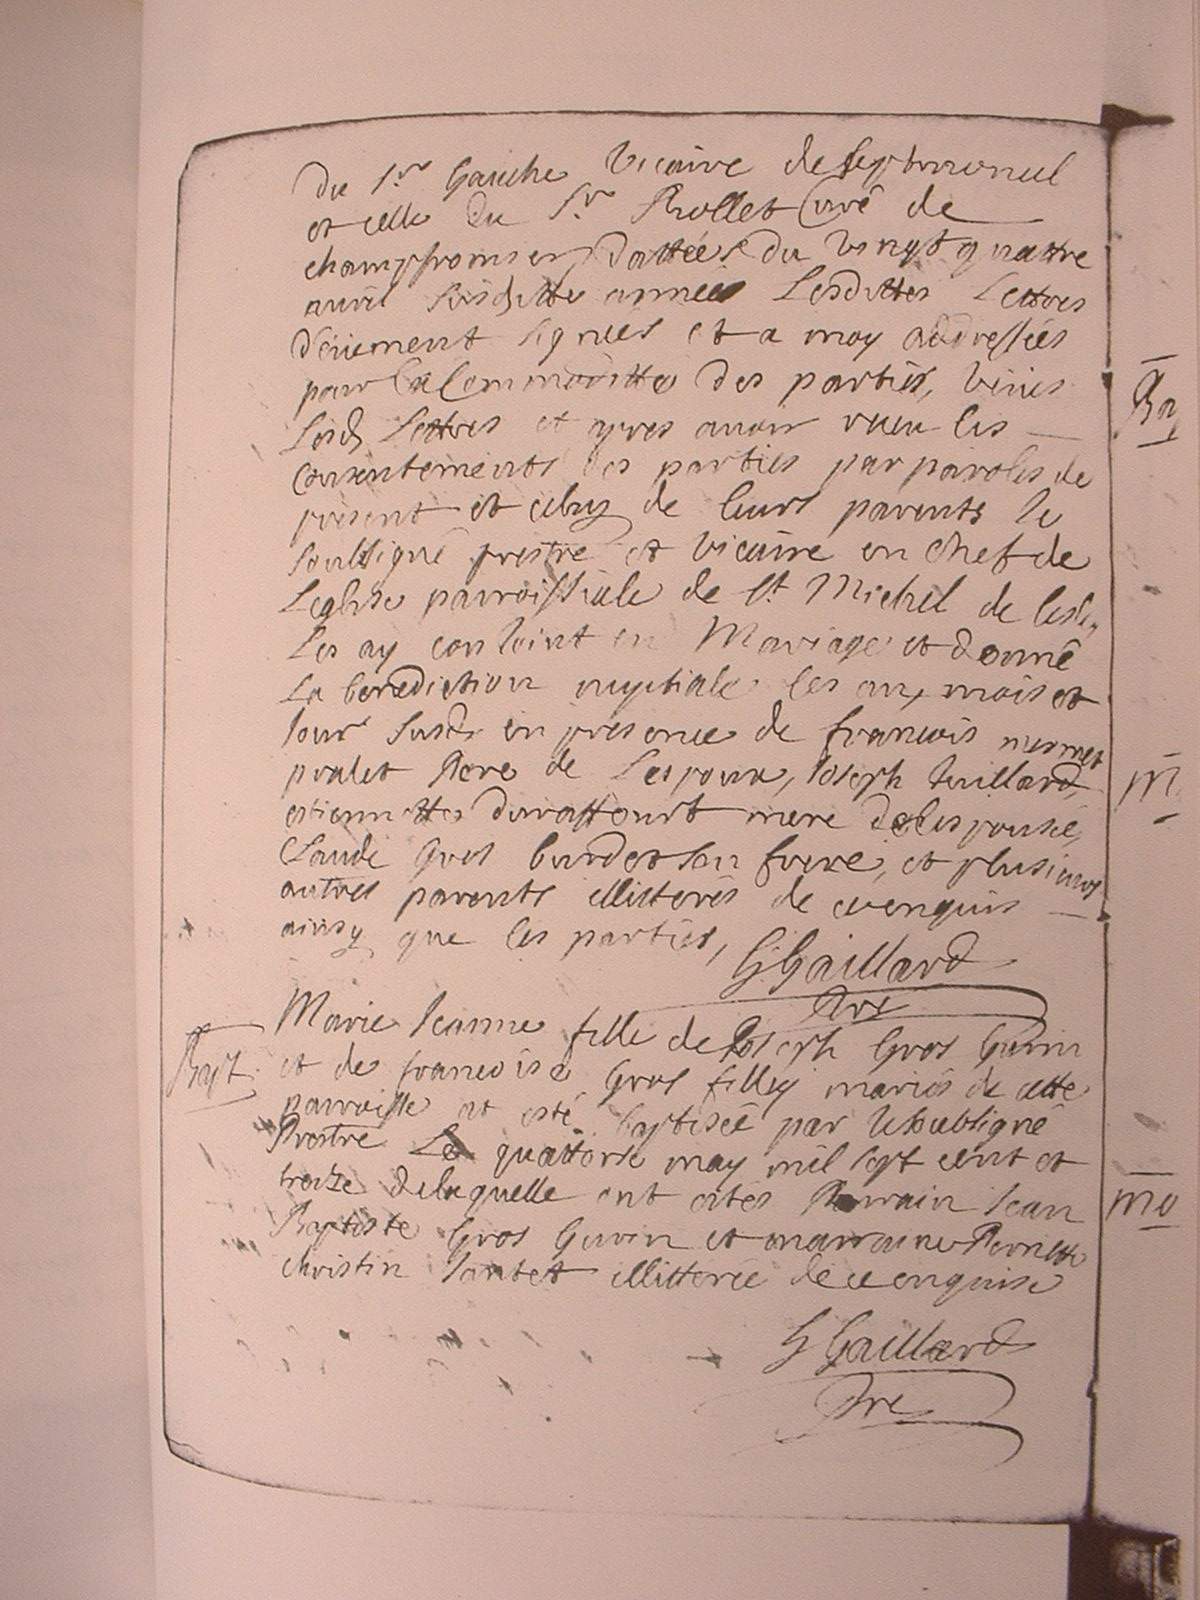 Du Sr Gauche Vicaire de Septmoncel
et celle du Sr Rollet Curé de
champfromier Dattées du vingt quattre
avril susditte année Lesdittes Lettres
Deüement signées et a moy addressées
pour la Commoditte des parties, veües
Lesd Lettres et apres avoir receu les
Consentements des parties par paroles de
present et celuy de leurs parents Ie
soubsigné prestre et vicaire en chef de
Leglise parroissiale de St Michel de
Les ay conIoint en Mariage et donné
La benediction nuptiale les an, mois et
Iour susd en presence de francois mermet
pralet Pere de Lespoux, Ioseph tuillard,
estiennette Duraffourt mere de lespousée,
Claude Gros burdet son frere, et plusieurs
autres parents illitterés de ce enquis
ainsy que les parties,
G Gaillard
Pre
Bapt
Marie Ieanne fille de Ioseph Gros Gurin
et de francoise Gros filley mariés de cette
parroisse at esté baptisée par le soubsigné
Prestre Le quattorse may mil sept cent et
treize de laquelle ont estés Parrain Iean
Baptiste Gros Gurin et marraine Pernette
christin Iantet illitterée de ce enquise
G Gaillard
Pre
Bap
M
Mo